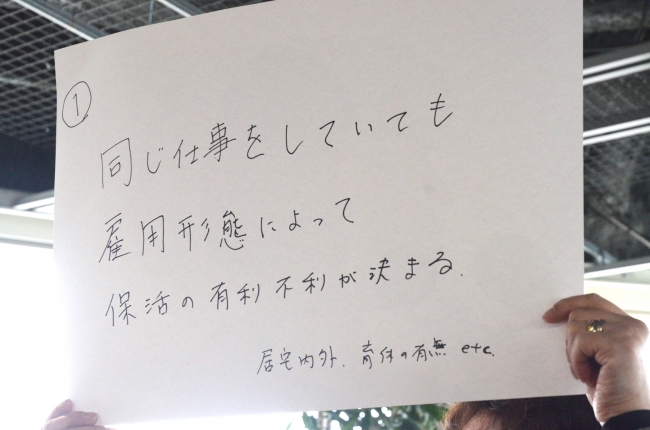 ①
同じ仕事をしていても
雇用形態によって
保活の有利不利が決まる.
居宅内外. 育休の有無 etc.